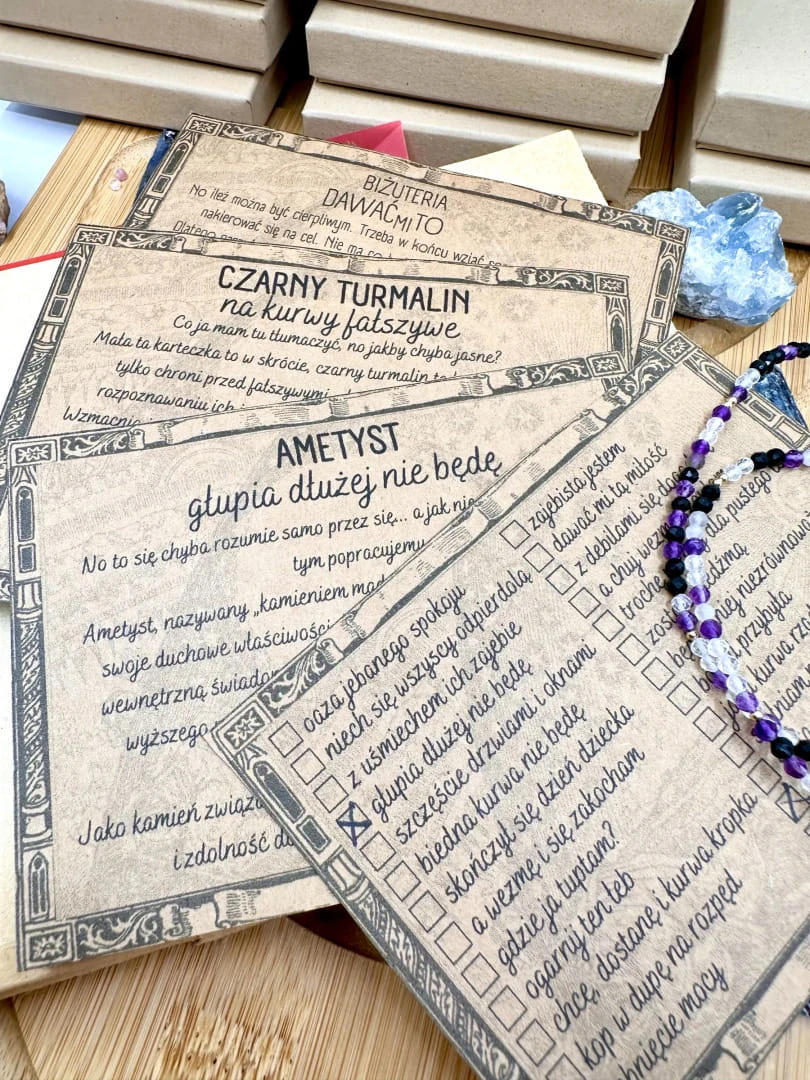 BIŻUTERIA
DAWAĆ MI TO
No ileż można być cierpliwym. Trzeba w końcu wziąć
nakierować się na cel. Nie ma co
Dlatego
CZARNY TURMALIN
na kurwy fałszywe
Co ja mam tu tłumaczyć, no jakby chyba jasne?
Mała ta karteczka to w skrócie, czarny turmalin
tylko chroni przed fałszywymi
rozpoznawaniu ich
Wzmacnia
AMETYST
głupia dłużej nie będę
No to się chyba rozumie samo przez się... a jak nie
tym popracujemy
Ametyst, nazywany „kamieniem
swoje duchowe właściwości
wewnętrzną
wyższego
Jako kamień
i zdolność
oaza jebanego spokoju
niech się wszyscy odpierdolą
z uśmiechem ich zajebie
głupia dłużej nie będę
szczęście drzwiami i oknami
biedna kurwa nie będę
skończył się dzień dziecka
a wezmę i się zakocham
gdzie ja tuptam?
ogarnij ten łeb
chcę, dostanę i kurwa kropka
kop w dupę na rozpęd
mocy
zajebista jestem
dawać mi tą miłość
z debilami się
a chuj
trochę
pustego
niezrównow
przybyła
kurwa